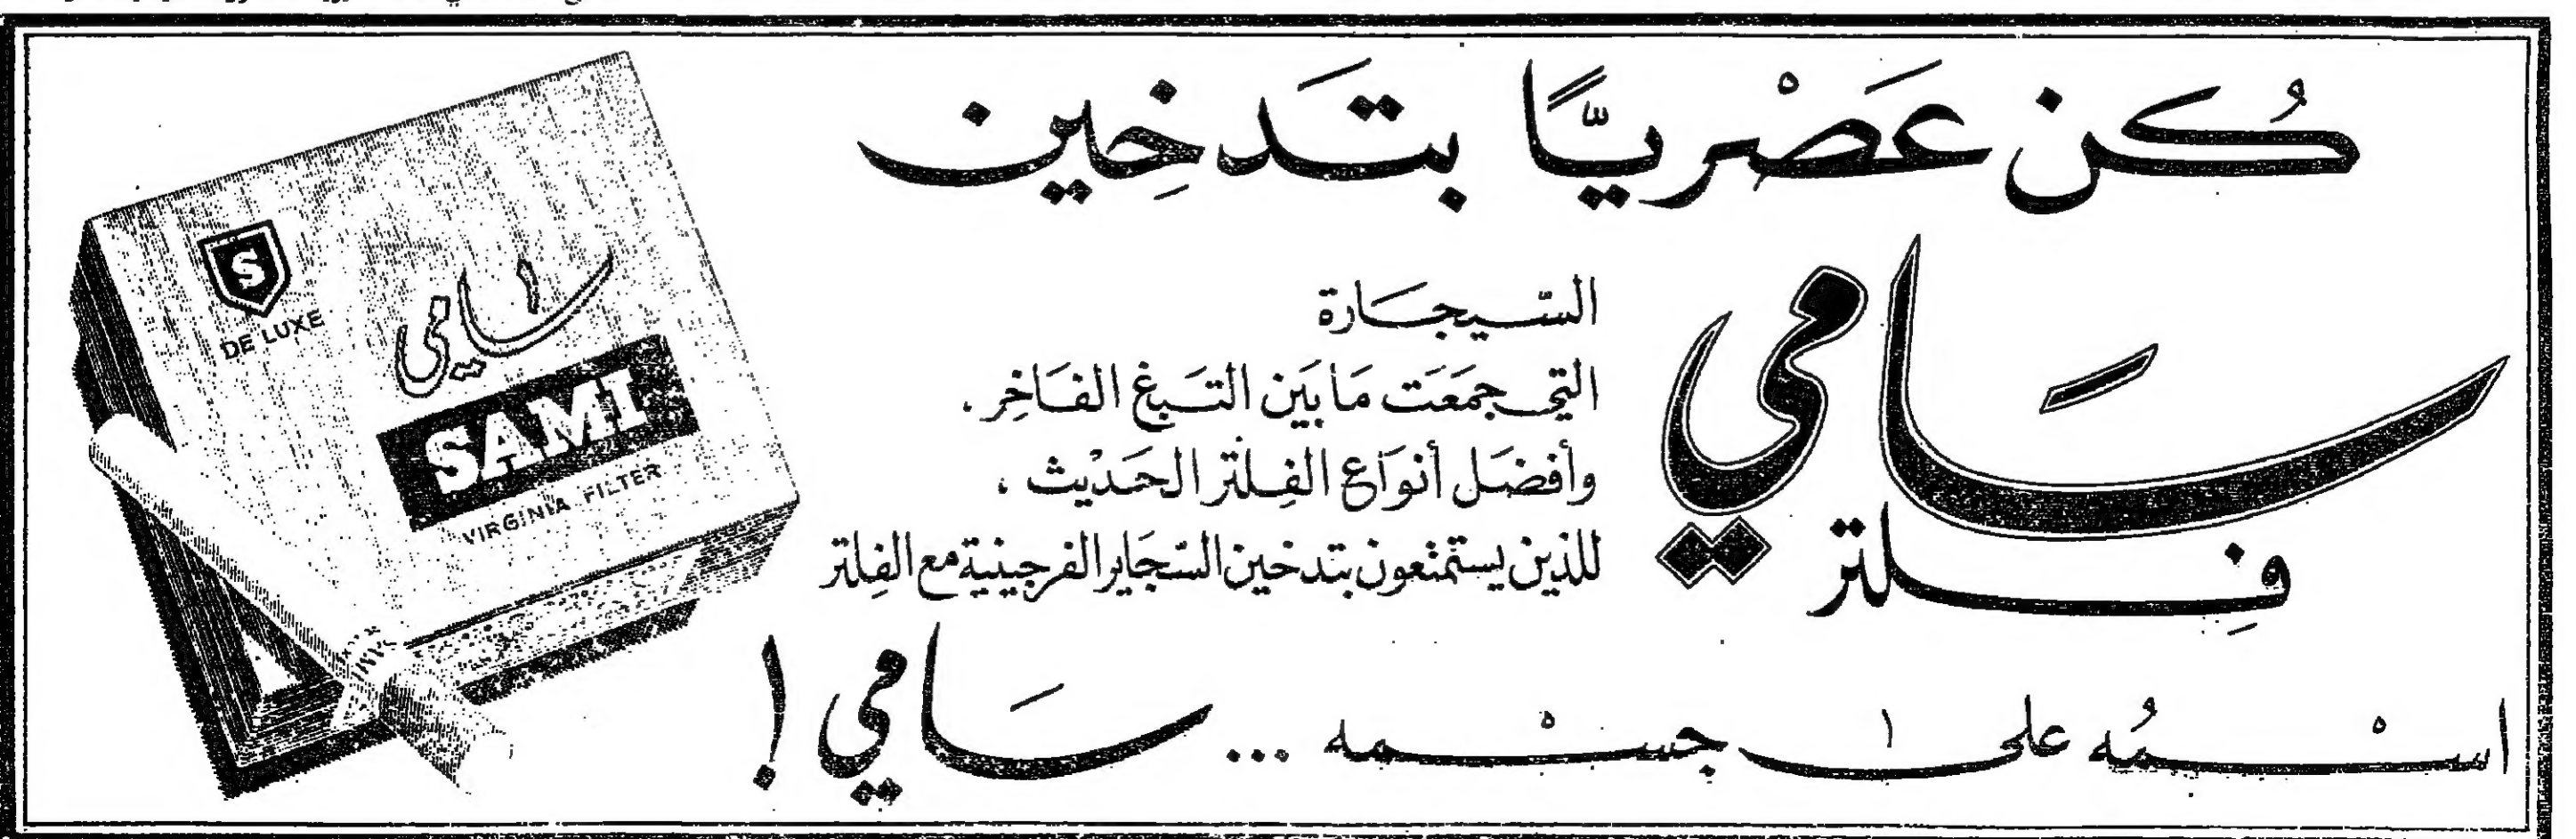 كُن عَصْرِيًّا بتَدخِين
سَامي
فِلتر
السّيجَارة
التي جمَعَت مَا بَين التَبغ الفَاخِر .
وأفضَل أنوَاع الفِلتر الحَديْث ،
للذين يستمتعون بتدخين السّجَاير الفرجينية مع الفِلتر
اسْمُه على جسْمه ... سَامي !
S
DE LUXE
سامي
SAMI
VIRGINIA FILTER